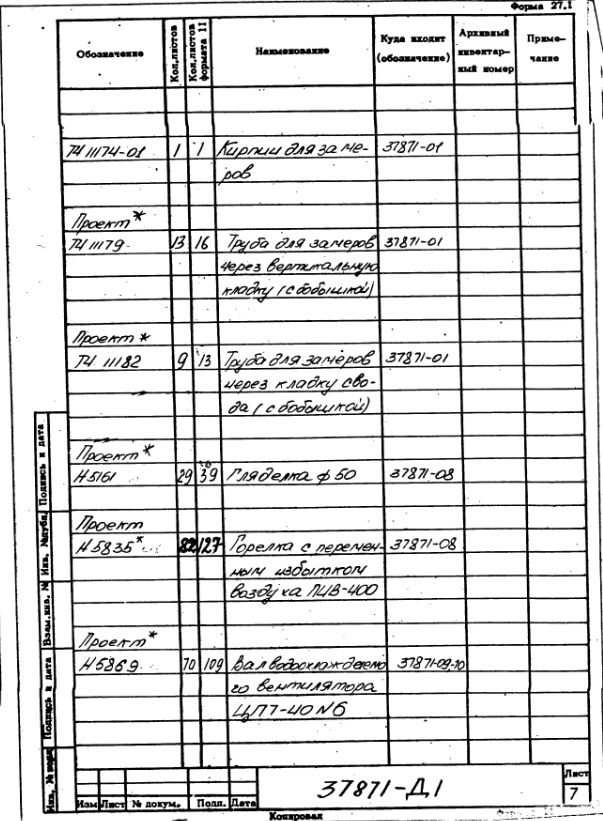 Форма 27.1
Обозначение Кол.листов Кол.листов формата 11 Наименование Куда входит (обозначение) Архивный инвентарный номер Примечание
ТЧ 11174-01 1 1 Кирпич для заме- 37871-01
ров
Проект*
ТЧ 11179 13 16 Труба для замеров 37871-01
через вертикальную
кладку (с бобышкой)
Проект*
ТЧ 11182 9 13 Труба для замеров 37871-01
через кладку сво-
да (с бобышкой)
Проект*
Н5161 29 39 Гляделка ф 50 37871-08
Проект
Н5835* 82 127 Горелка с перемен- 37871-08
ным избытком
воздуха ПЦВ-400
Проект*
Н5869 70 109 Вал водоохлаждаемо 37871-09-10
го вентилятора
ЦП7-40 N6
Подпись и дата
Инв. №дубл.
Взам.инв. №
Подпись и дата
Инв. № подл
37871-Д1
Лист
7
Изм Лист № докум. Подп. Дата
Копировал